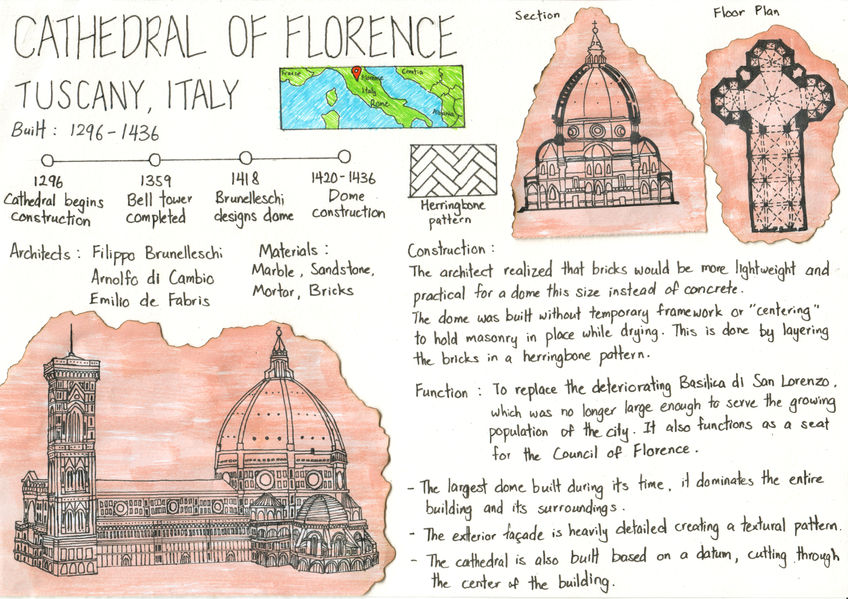 CATHEDRAL OF FLORENCE
TUSCANY, ITALY
Built : 1296 - 1436
France
Florence
Italy
Rome
Croatia
Albania
Section
Floor Plan
1296
Cathedral begins
construction
1359
Bell tower
completed
1418
Brunelleschi
designs dome
1420-1436
Dome
construction
Herringbone
pattern
Architects : Filippo Brunelleschi
Arnolfo di Cambio
Emilio de Fabris
Materials :
Marble, Sandstone,
Mortar, Bricks
Construction :
The architect realized that bricks would be more lightweight and
practical for a dome this size instead of concrete.
The dome was built without temporary framework or "centering"
to hold masonry in place while drying. This is done by layering
the bricks in a herringbone pattern.
Function : To replace the deteriorating Basilica di San Lorenzo,
which was no longer large enough to serve the growing
population of the city. It also functions as a seat
for the Council of Florence.
- The largest dome built during its time, it dominates the entire
building and its surroundings.
- The exterior façade is heavily detailed creating a textural pattern.
- The cathedral is also built based on a datum, cutting through
the center of the building.